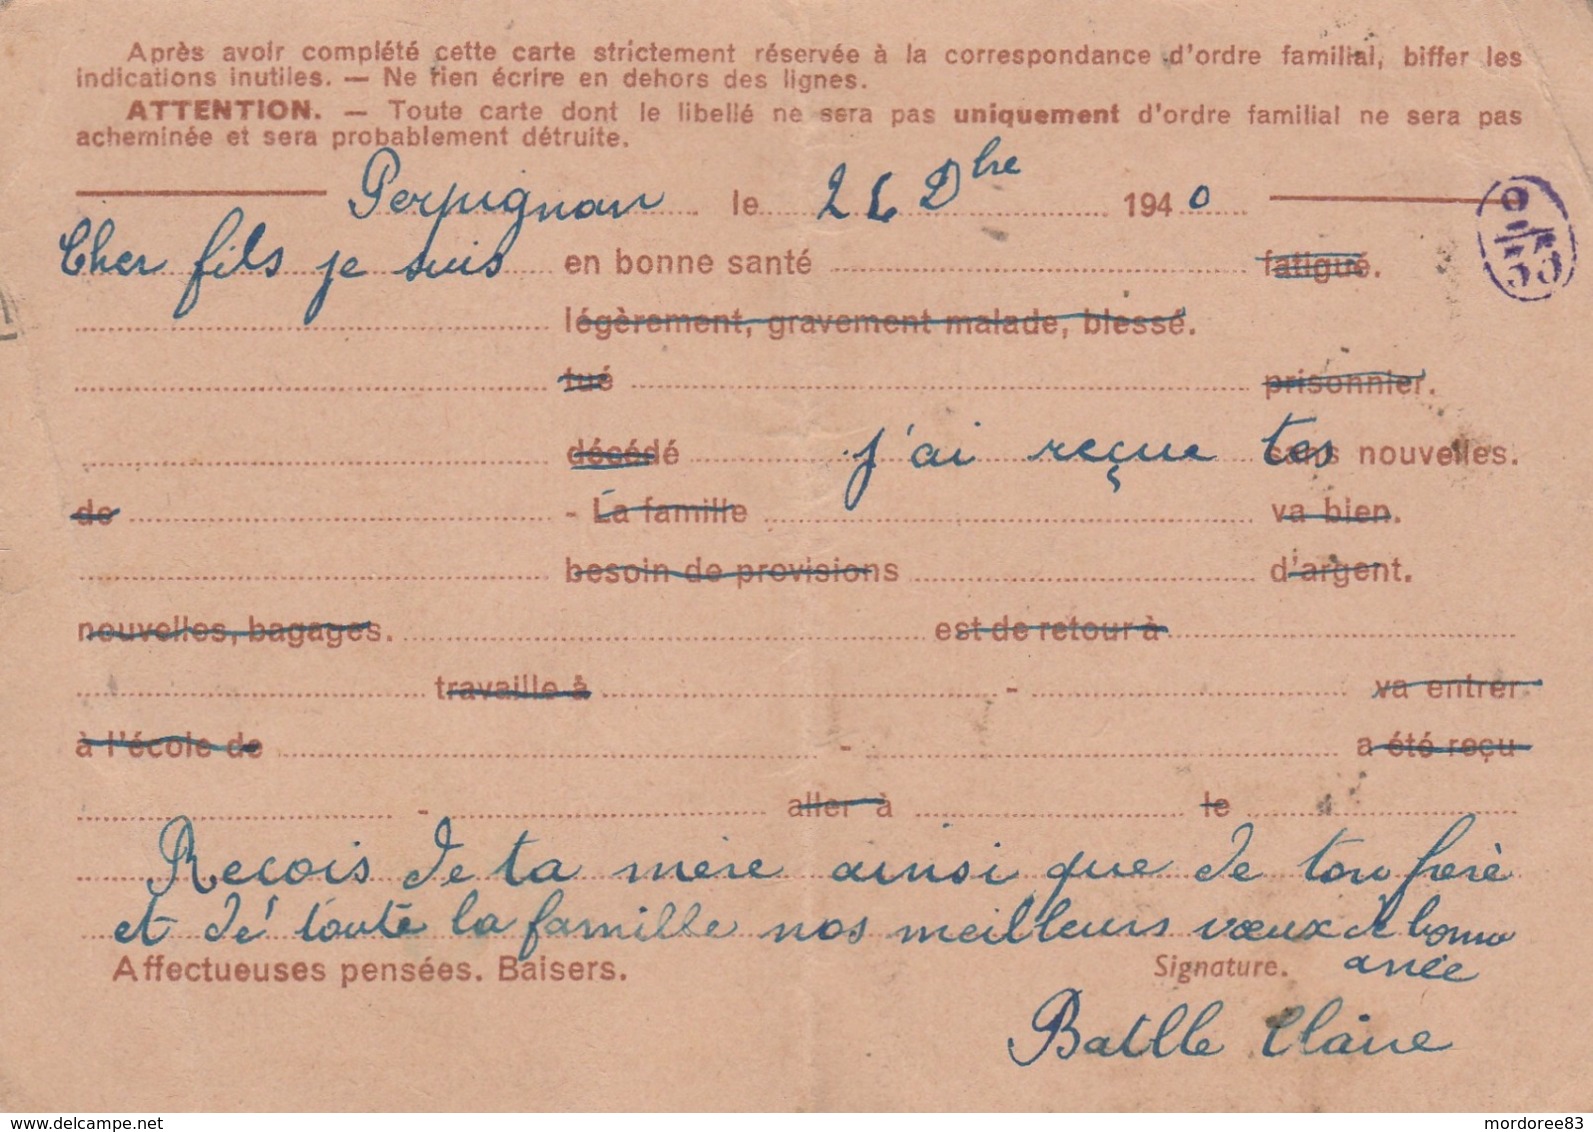 Après avoir complété cette carte strictement réservée à la correspondance d'ordre familial, biffer les
indications inutiles. — Ne rien écrire en dehors des lignes.
ATTENTION. — Toute carte dont le libellé ne sera pas uniquement d'ordre familial ne sera pas
acheminée et sera probablement détruite.
Perpignan le 26 Dbre 1940
Cher fils je suis en bonne santé fatigué.
légèrement, gravement malade, blessé.
tué prisonnier.
décédé j'ai reçue tes sans nouvelles.
de - La famille va bien.
besoin de provisions d'argent.
nouvelles, bagages. est de retour à
travaille à - va entrer
à l'école de - a été reçu
- aller à le
Recois de ta mère ainsi que de ton frere
et dé toute la famille nos meilleurs vœux de bonne
Affectueuses pensées. Baisers. Signature. anée
Batlle Claire
mordoree83